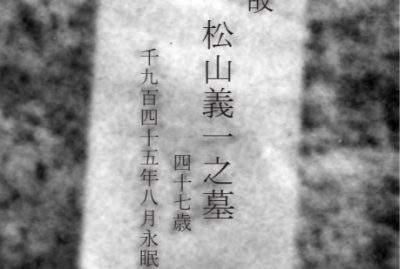 故
松山義一之墓
四十七歳
千九百四十五年八月永眠